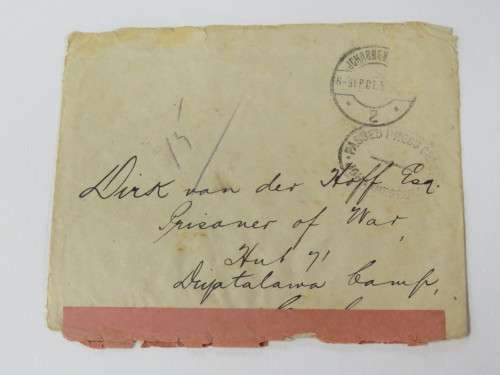 JOHANNES
8-SEP.01.
* 2 *
PASSED PRESS
15
Dirk van der Hoff Esq.
Prisoner of War,
Hut 71
Diyatalawa Camp,